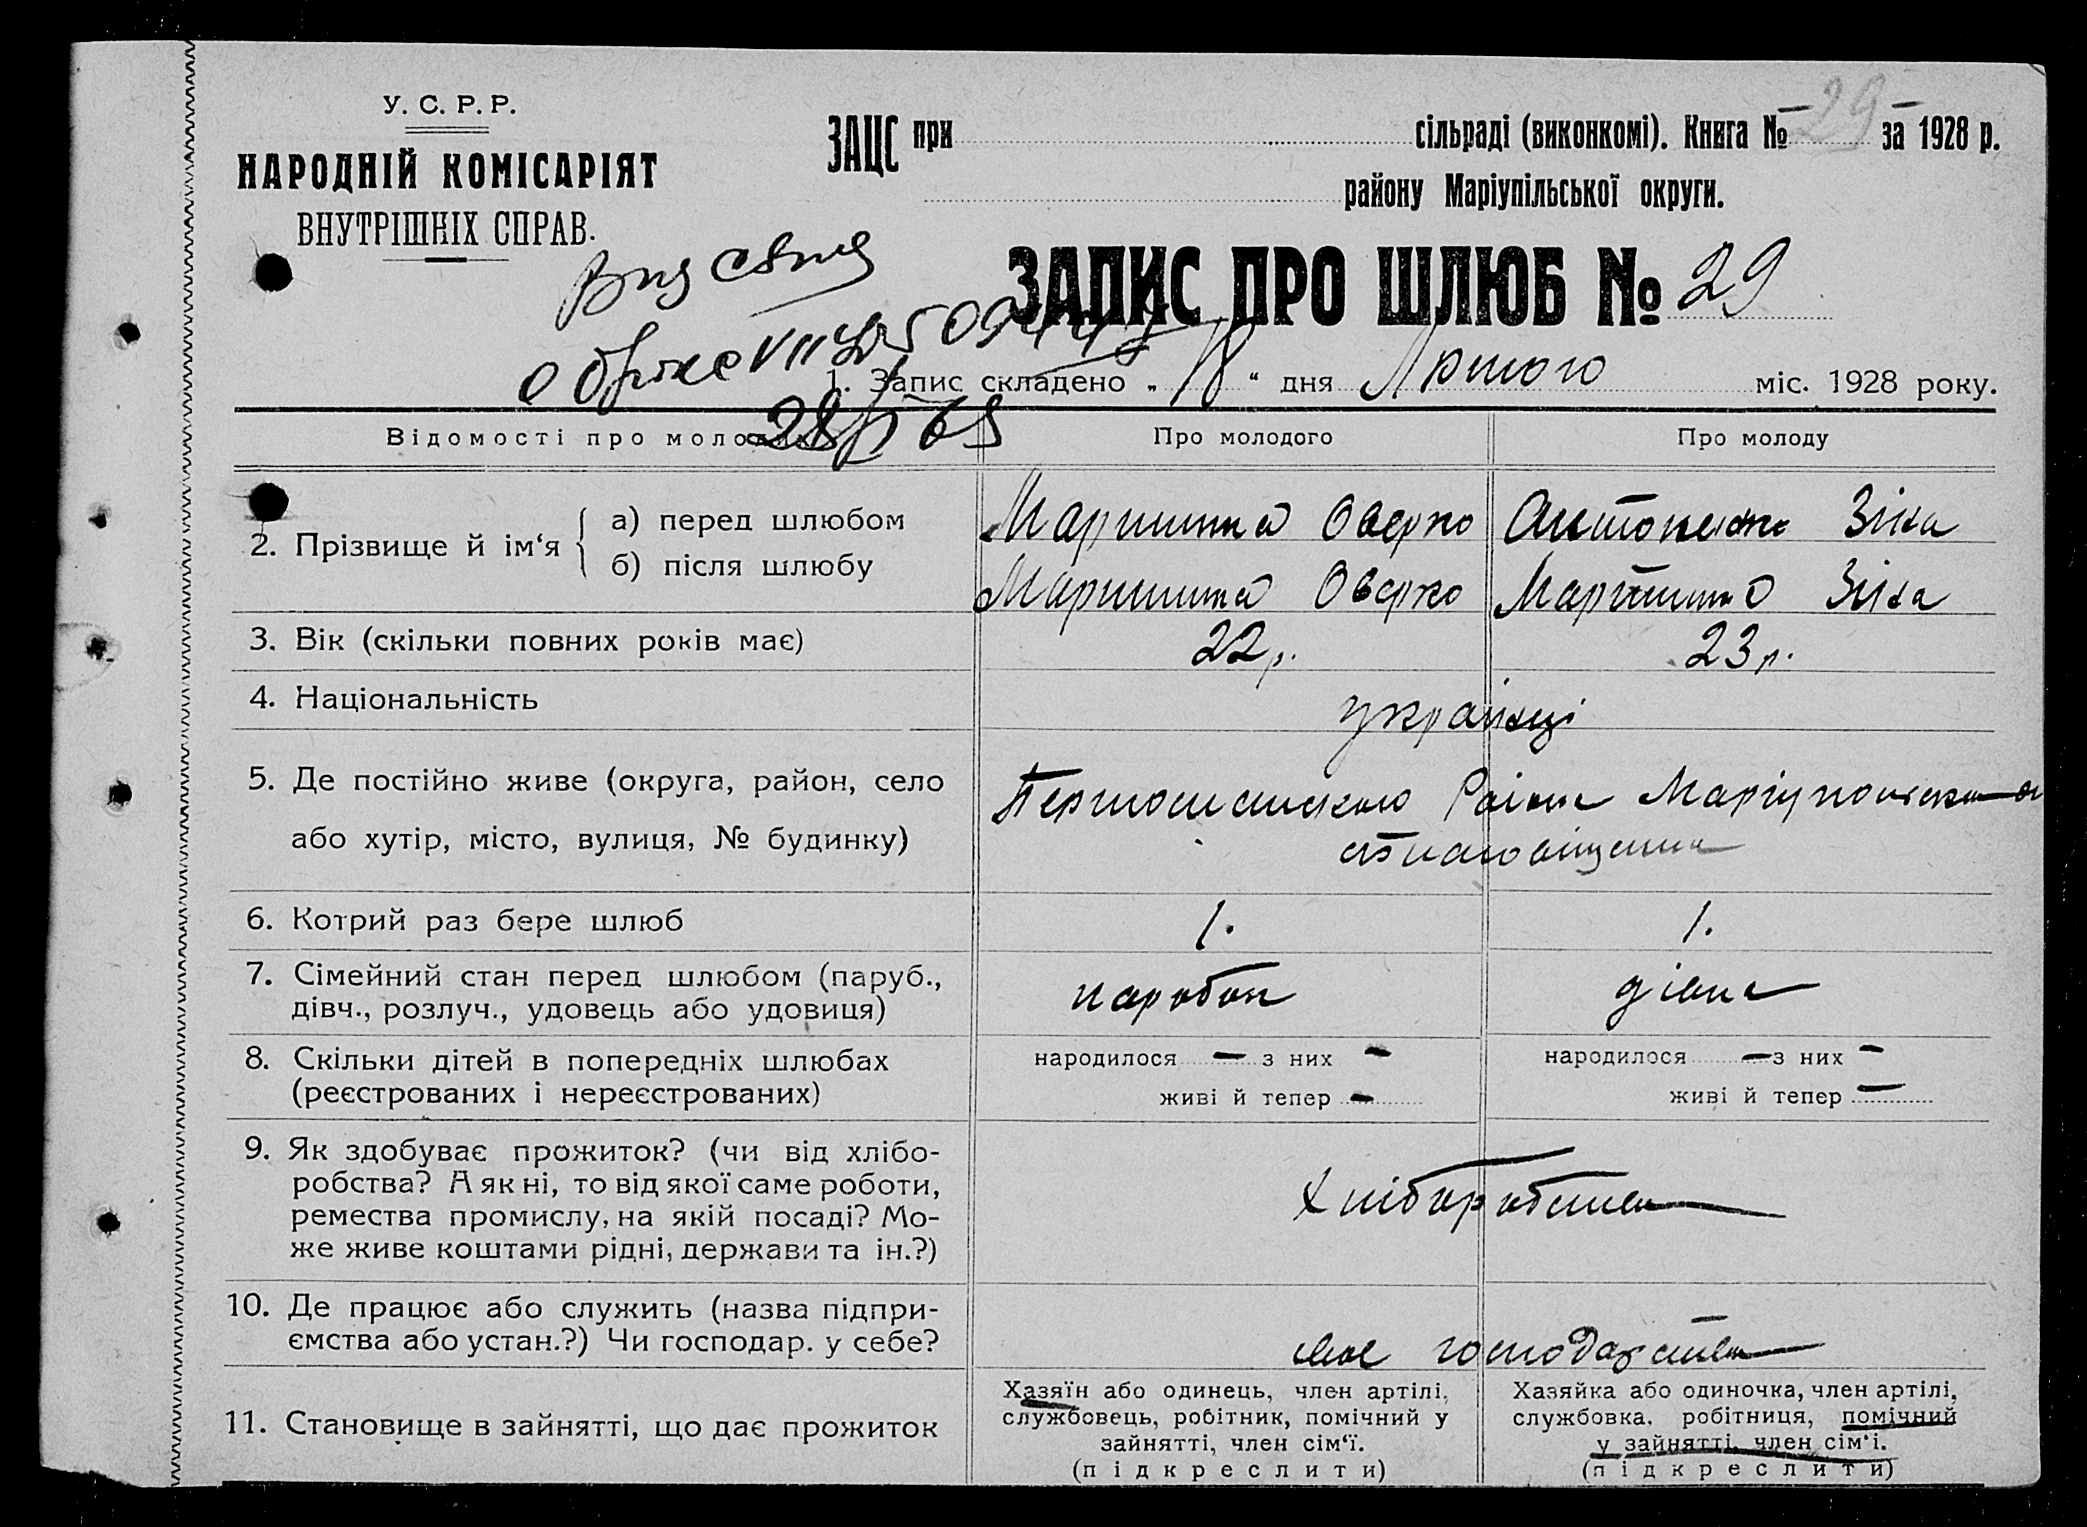 У. С. Р. Р.
НАРОДНІЙ КОМІСАРІЯТ
ВНУТРІШНІХ СПРАВ.
ЗАЦС при сільраді (виконкомі). Книга № 29 за 1928 р.
району Маріупільської округи.
ЗАПИС ПРО ШЛЮБ № 29
1. Запис складено „ 18 “ дня Лютого міс. 1928 року.
28/ 68
Відомості про молодих
Про молодого
Про молоду
2. Прізвище й ім‘я
а) перед шлюбом
Оверко
Антоненко Зіна
б) після шлюбу
Оверко
Зіна
3. Вік (скільки повних років має)
22 р.
23 р.
4. Національність
українці
5. Де постійно живе (округа, район, село
або хутір, місто, вулиця, № будинку)
6. Котрий раз бере шлюб
1.
1.
7. Сімейний стан перед шлюбом (паруб.,
дівч., розлуч., удовець або удовиця)
паробок
8. Скільки дітей в попередніх шлюбах
(реєстрованих і нереєстрованих)
народилося — з них —
живі й тепер —
народилося — з них —
живі й тепер —
9. Як здобуває прожиток? (чи від хлібо-
робства? А як ні, то від якої саме роботи,
ремества промислу, на якій посаді? Мо-
же живе коштами рідні, держави та ін.?)
Хліборобства
10. Де працює або служить (назва підпри-
ємства або устан.?) Чи господар. у себе?
своє господарство
11. Становище в зайнятті, що дає прожиток
Хазяїн або одинець, член артілі,
службовець, робітник, помічний у
зайнятті, член сім‘ї.
(підкреслити)
Хазяйка або одиночка, член артілі,
службовка, робітниця, помічний
у зайнятті, член сім‘ї.
(підкреслити)